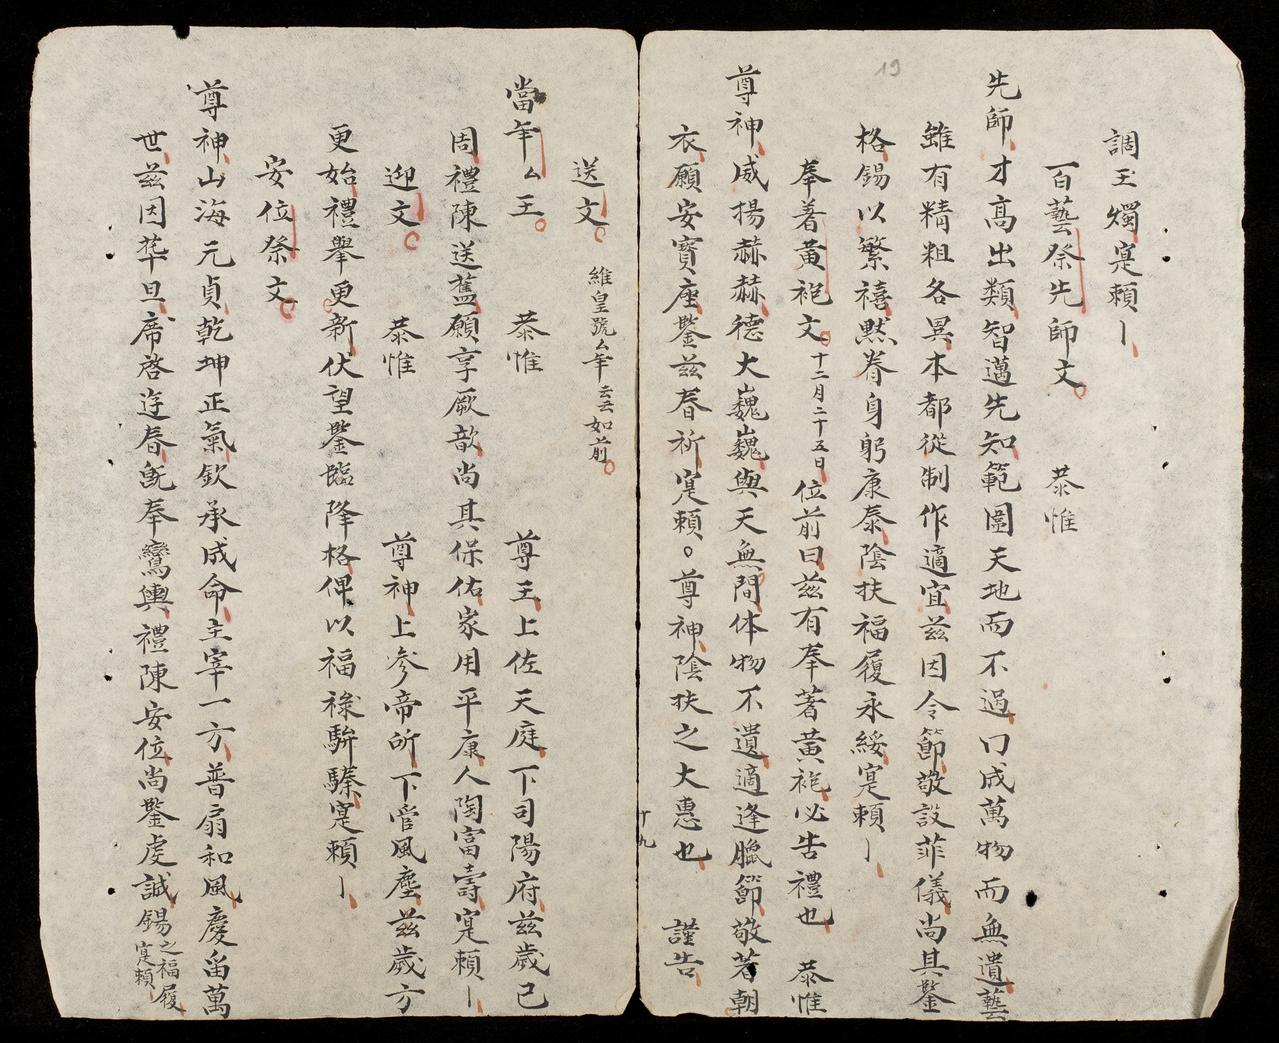 調玉燭寔賴丨
百藝祭先師文 恭惟
先師才高出類智邁先知範圍天地而不過曲成萬物而無遺藝
雖有精粗各異本都從制作適宜茲因令節敬設菲儀尚其鑒
格錫以繁禧默眷身躬康泰陰扶福履永綏寔賴丨
奉著黃袍文 十二月二十五日 位前曰茲有奉著黃袍必告禮也 恭惟
尊神威揚赫赫德大巍巍與天無間体物不遺適逢臘節敬著朝
衣願安寶座鑒茲春祈寔賴尊神陰扶之大惠也 謹告
十九
送文 維皇號厶年云云如前
當年厶王 恭惟 尊王上佐天庭下司陽府茲歲已
周禮陳送舊願享厥歆尚其保佑家用平康人陶富壽寔賴丨
迎文 恭惟 尊神上參帝所下管風塵茲歲方
更始禮舉更新伏望鑒臨降格俾以福祿駢臻寔賴丨
安位祭文
尊神山海元貞乾坤正氣欽承成命主宰一方普扇和風慶留萬
世茲因華旦席啓迓春旣奉鸞輿禮陳安位尚鑒虔誠錫之福履寔賴
19